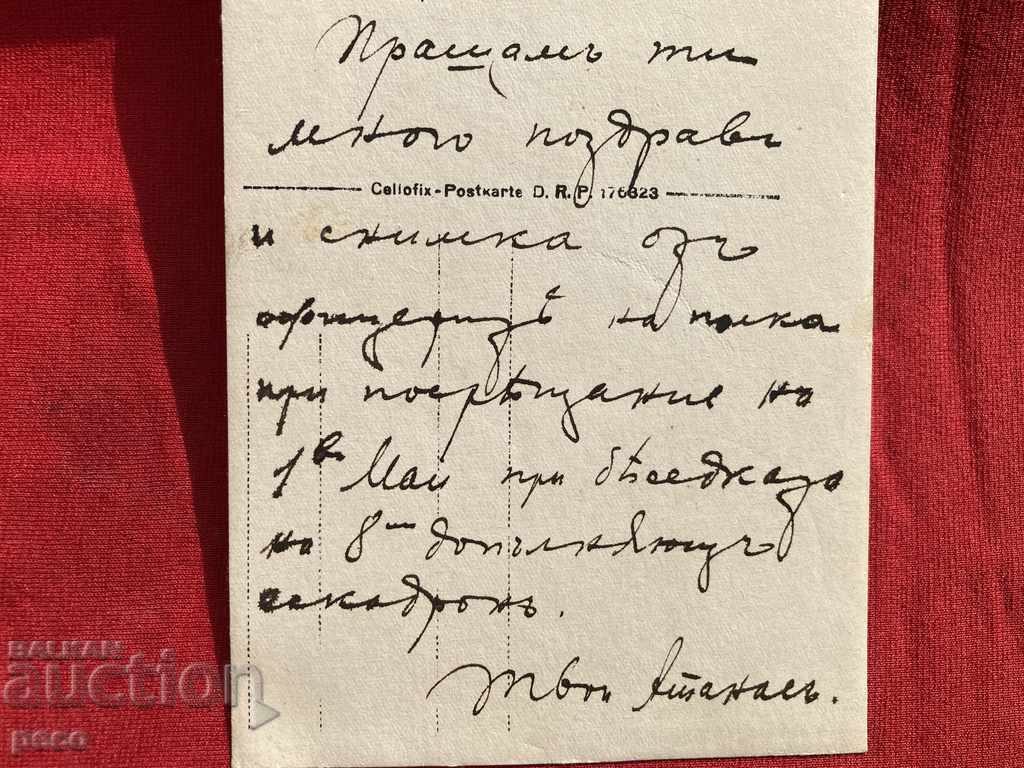 Пращамъ ти
много поздрави
Cellofix-Postkarte D. R. P. 176323
и снимка отъ
на полка
при посрѣщание на
1ви Май при бѣседката
на 8ми допълняющъ
ескадронъ.
Твой Атанасъ.
BALKAN
auction
peco